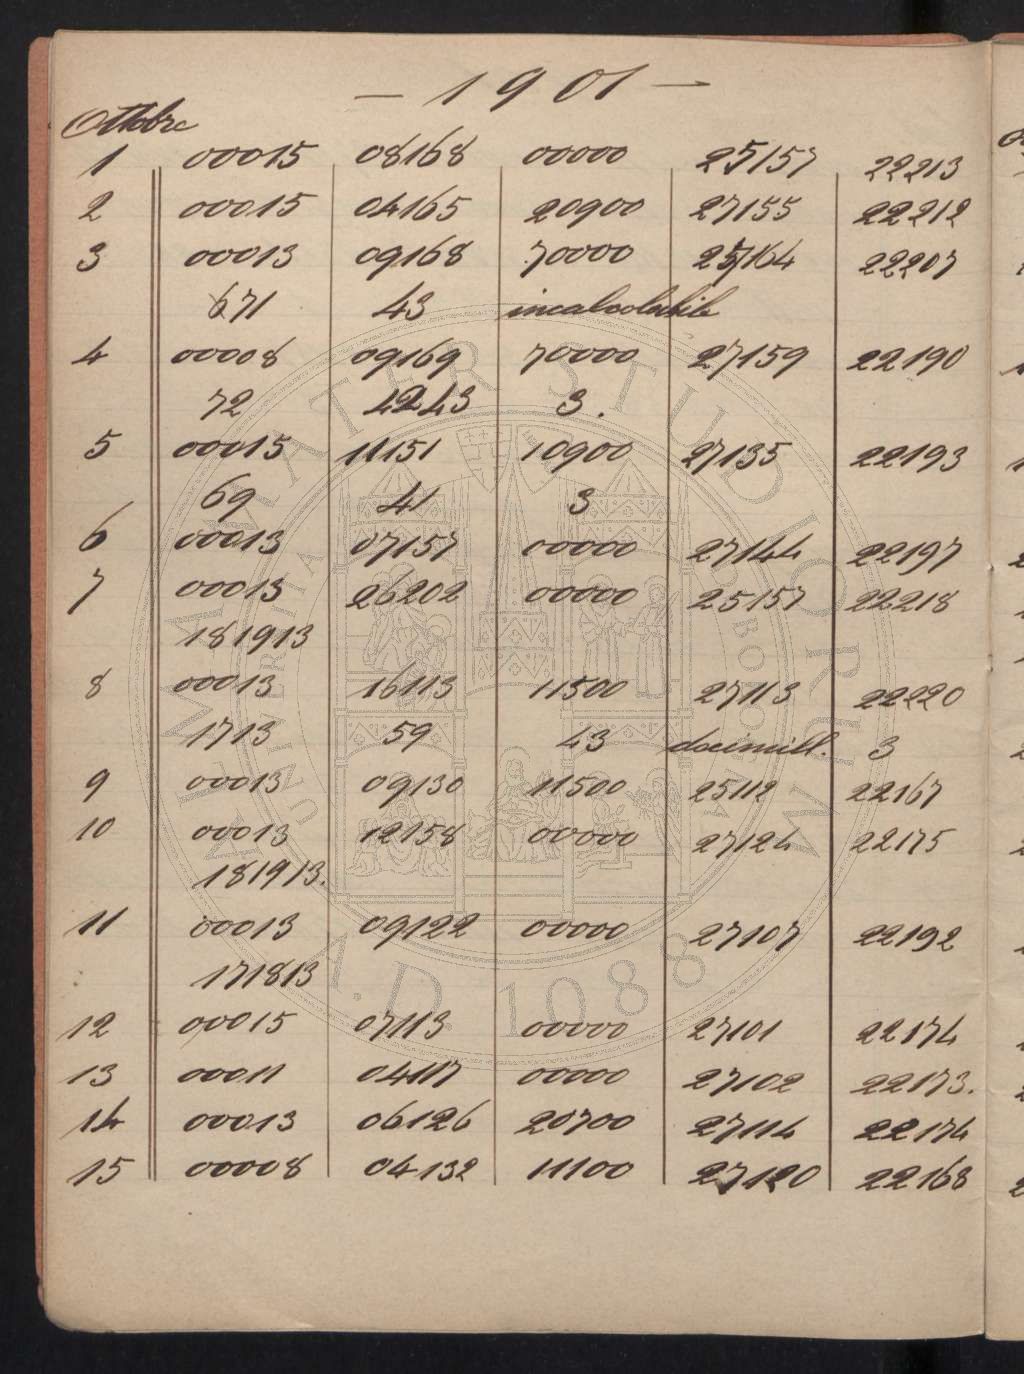 - 1901 -
Ottobre
1 00015 08168 00000 25157 22213
2 00015 04165 20900 27155 22212
3 00013 09168 70000 25164 22207
671 43 incalcolabile
4 00008 09169 70000 27159 22190
72 4243 3.
5 00015 11151 10900 27135 22193
69 41 3
6 00013 07157 00000 27144 22197
7 00013 26202 00000 25157 22218
181913
8 00013 16113 11500 27113 22220
1713 59 43 decimill. 3
9 00013 09130 11500 25112 22167
10 00013 12158 00000 27124 22175
181913.
11 00013 09122 00000 27107 22192
171813
12 00015 07113 00000 27101 22174
13 00011 04117 00000 27102 22173.
14 00013 06126 20700 27114 22174
15 00008 04132 11100 27120 22168
ALMA MATER STUDIORUM
A.D. 1088